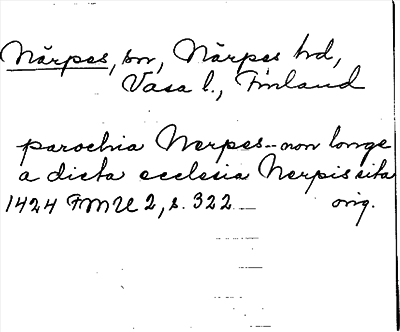 Närpes, sn, Närpes hd,
Vasa l., Finland
parochia Nerpes -- non longe
a dicta ecclesia Nerpis sita
1424 FMU 2, s. 322 orig.